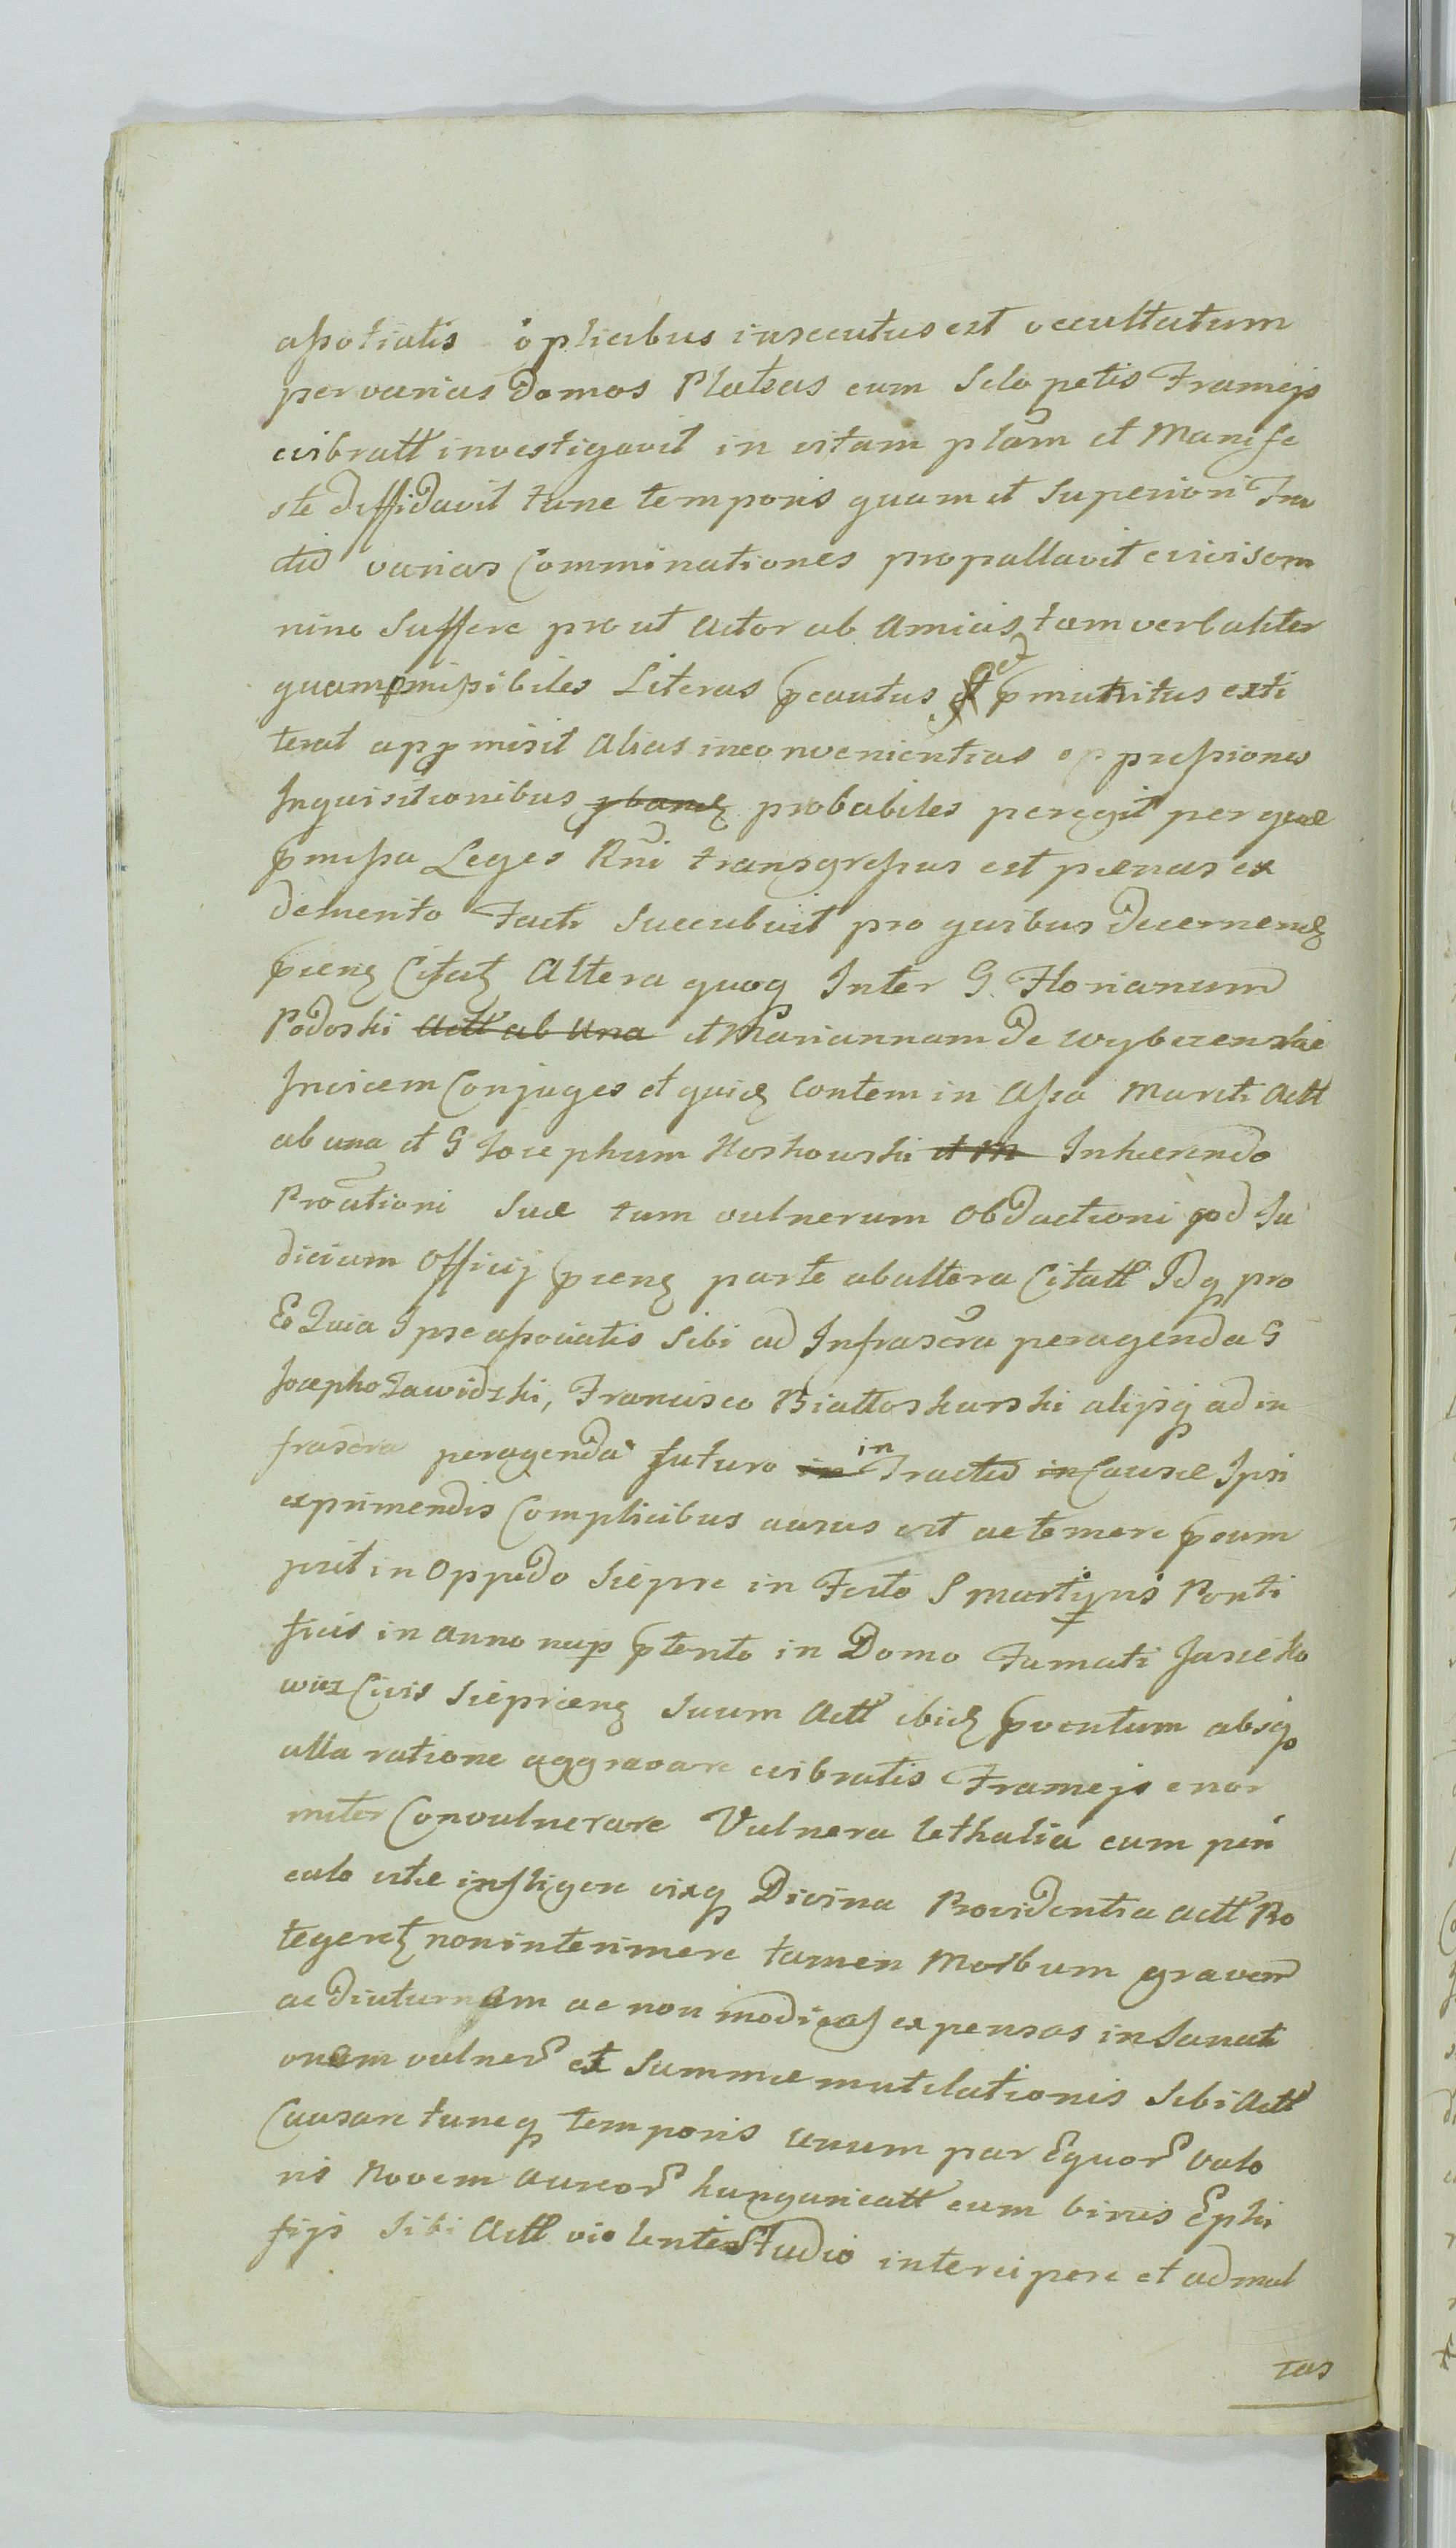 assotiatis oplicibus insecutus est occultatum
per varias Domos Plateas cum Sclopetis Frameis
evibratt investigavit in vitam plam et Manife
ste diffidavit tunc temporis quam et superiori Tra
ctu varias Comminationes propallavit e vivis om
nino Suffere prout Actor ab Amicis tam verbaliter
quam pmissibiles Literas pcautus et pmunitus exti
terat appmisit alias inconvenientias oppressiones
Inquisitionibus probabiles peregit per quæ
pmissa Leges Rni transgressus est pænas ex
demerito Facti Succubuit pro quibus Decernend
pcienq Citatq Altera quoq Inter G. Florianum
Podoski Actt ab Una et Mariannam De Wybczenskie
Invicem Conjuges et quid Contem in Assa Mariti Actt
ab una et G Josephum Koskowski et M Inhærendo
Proationi Suæ tam vulnerum Obductioni qod Ju
dicium Officij pcienq parte ab altera Citatt Idq pro
Eo Quia Ipse associatis Sibi ad Infrascra peragenda G
Josepho Zawidzki, Francisco Białłoskurski alijsq ad in
frascra peragenda futuro in in Tractu in Causæ Ipsi
exprimendis Complicibus ausus est ac temere psum
psit in Oppido Siepre in Festo S Martini Ponti
ficis in anno nup ptento in Domo Famati Jasieko
wicz Civis Siepriens Suum Actt ibid pventum absq
ulla ratione aggravare evibratis Frameis enor
miter Convulnerare Vulnera lethalia cum peri
culo vitæ infligere vixq Divina Providentia Actt Pro
tegent non interimere tamen Morbum gravem
ac Diuturnam ac non modicas expensas in Sanati
onem vulner et Summæ mutilationis Sibi Actt
Causare tuncq temporis unum par Equor valo
ris Novem Aureor hungaricatt cum binis Ephi
pijs Sibi Actt violenti Studio intercipere et ad mul
tas